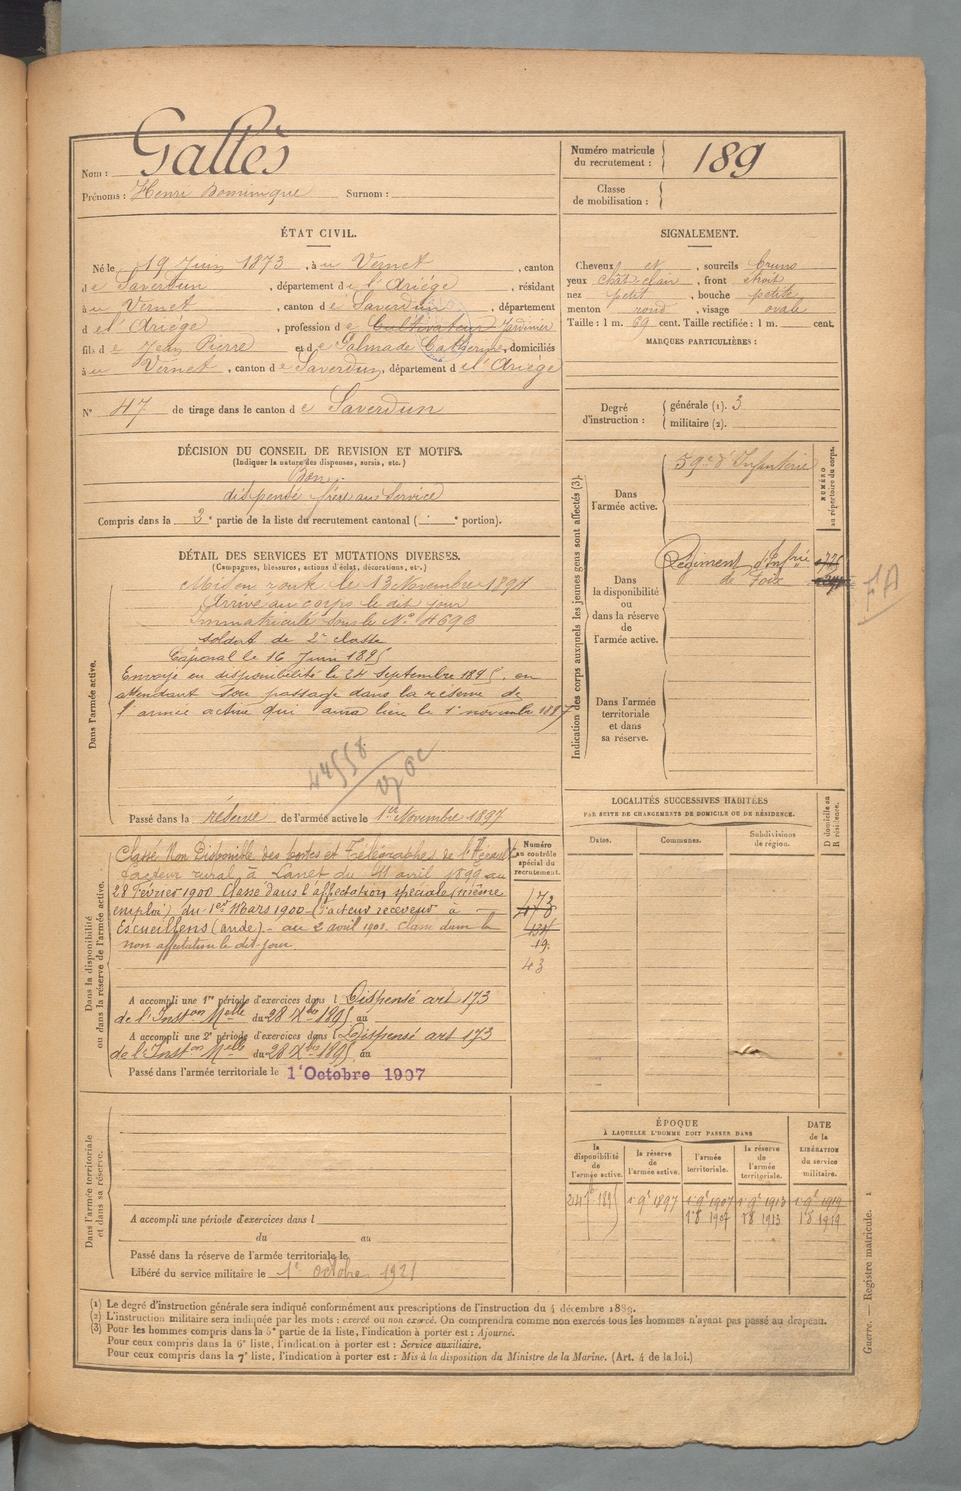 Nom : Gallès
Prénoms : Henri Dominique Surnom :
Numéro matricule du recrutement : 189
Classe de mobilisation :
ÉTAT CIVIL.
Né le 19 Juin 1873, à u Vernet, canton
d e Saverdun, département d e l'Ariége, résidant
à u Vernet, canton d e Saverdun, département
d e l'Ariége, profession d e Cultivateur Jardinier
fils d e Jean Pierre et d e Palmade Catherine, domiciliés
à u Vernet, canton d e Saverdun, département d e l'Ariége
N° 47 de tirage dans le canton d e Saverdun
SIGNALEMENT.
Cheveux et, sourcils bruns
yeux chât-clair, front étroit
nez petit, bouche petite
menton rond, visage ovale
Taille : 1 m. 69 cent. Taille rectifiée : 1 m. cent.
MARQUES PARTICULIÈRES :
Degré d'instruction : générale (1). 3
militaire (2).
DÉCISION DU CONSEIL DE REVISION ET MOTIFS.
(Indiquer la nature des dispenses, sursis, etc.)
Bon
dispensé frère au Service
Compris dans la 3e partie de la liste du recrutement cantonal ( e portion).
DÉTAIL DES SERVICES ET MUTATIONS DIVERSES.
(Campagnes, blessures, actions d'éclat, décorations, etc.)
Dans l'armée active.
Mis en route le 13 Novembre 1894
Arrivé au corps le dit jour
Immatriculé sous le N°
soldat de 2e classe
Caporal le 16 Juin 1895
Envoyé en disponibilité le 24 Septembre 1895, en
attendant son passage dans la réserve de
l'armée active qui aura lieu le 1er novembre 1897
Passé dans la réserve de l'armée active le 1er Novembre 1897
Indication des corps auxquels les jeunes gens sont affectés (3).
NUMÉRO au répertoire du corps.
Dans l'armée active.
59e d'Infanterie
Dans la disponibilité ou dans la réserve de l'armée active.
Régiment d'Infrie
de Foix
FA
Dans l'armée territoriale et dans sa réserve.
LOCALITÉS SUCCESSIVES HABITÉES
PAR SUITE DE CHANGEMENTS DE DOMICILE OU DE RÉSIDENCE.
Dates.
Communes.
Subdivisions de région.
D domicile ou R résidence.
Dans la disponibilité ou dans la réserve de l'armée active.
Numéro au contrôle spécial du recrutement.
Classé Non Disponible des postes et Télégraphes de l'Hérault
facteur rural à Lanet du 11 avril 1899 au
28 Février 1900 Classé dans l'affectation spéciale (même
emploi) du 1er Mars 1900 (facteur receveur à
Escueillens (aude) - au 2 avril 1901. Classé dans la
non affectation le dit jour.
173
19.
43
A accompli une 1re période d'exercices dans l Dispensé art 173
de l'Inston Melle du 28 Xbre 1895 au
A accompli une 2e période d'exercices dans l Dispensé art 173
de l'Inston Melle du 28 Xbre 1895 au
Passé dans l'armée territoriale le 1er Octobre 1907
Dans l'armée territoriale et dans sa réserve.
A accompli une période d'exercices dans l
du au
Passé dans la réserve de l'armée territoriale le
Libéré du service militaire le 1er octobre 1921
ÉPOQUE
À LAQUELLE L'HOMME DOIT PASSER DANS
la disponibilité de l'armée active.
la réserve de l'armée active.
l'armée territoriale.
la réserve de l'armée territoriale.
DATE de la LIBÉRATION du service militaire.
24 7bre 1895
1er 9e 1897
1er 9e 1907
1er 9e 1913
1er 9e 1919
1er 8 1907
1er 8 1913
1er 8 1919
(1) Le degré d'instruction générale sera indiqué conformément aux prescriptions de l'instruction du 4 décembre 1889.
(2) L'instruction militaire sera indiquée par les mots : exercé ou non exercé. On comprendra comme non exercés tous les hommes n'ayant pas passé au drapeau.
(3) Pour les hommes compris dans la 5e partie de la liste, l'indication à porter est : Ajourné.
Pour ceux compris dans la 6e liste, l'indication à porter est : Service auxiliaire.
Pour ceux compris dans la 7e liste, l'indication à porter est : Mis à la disposition du Ministre de la Marine. (Art. 4 de la loi.)
Guerre. — Registre matricule. 1